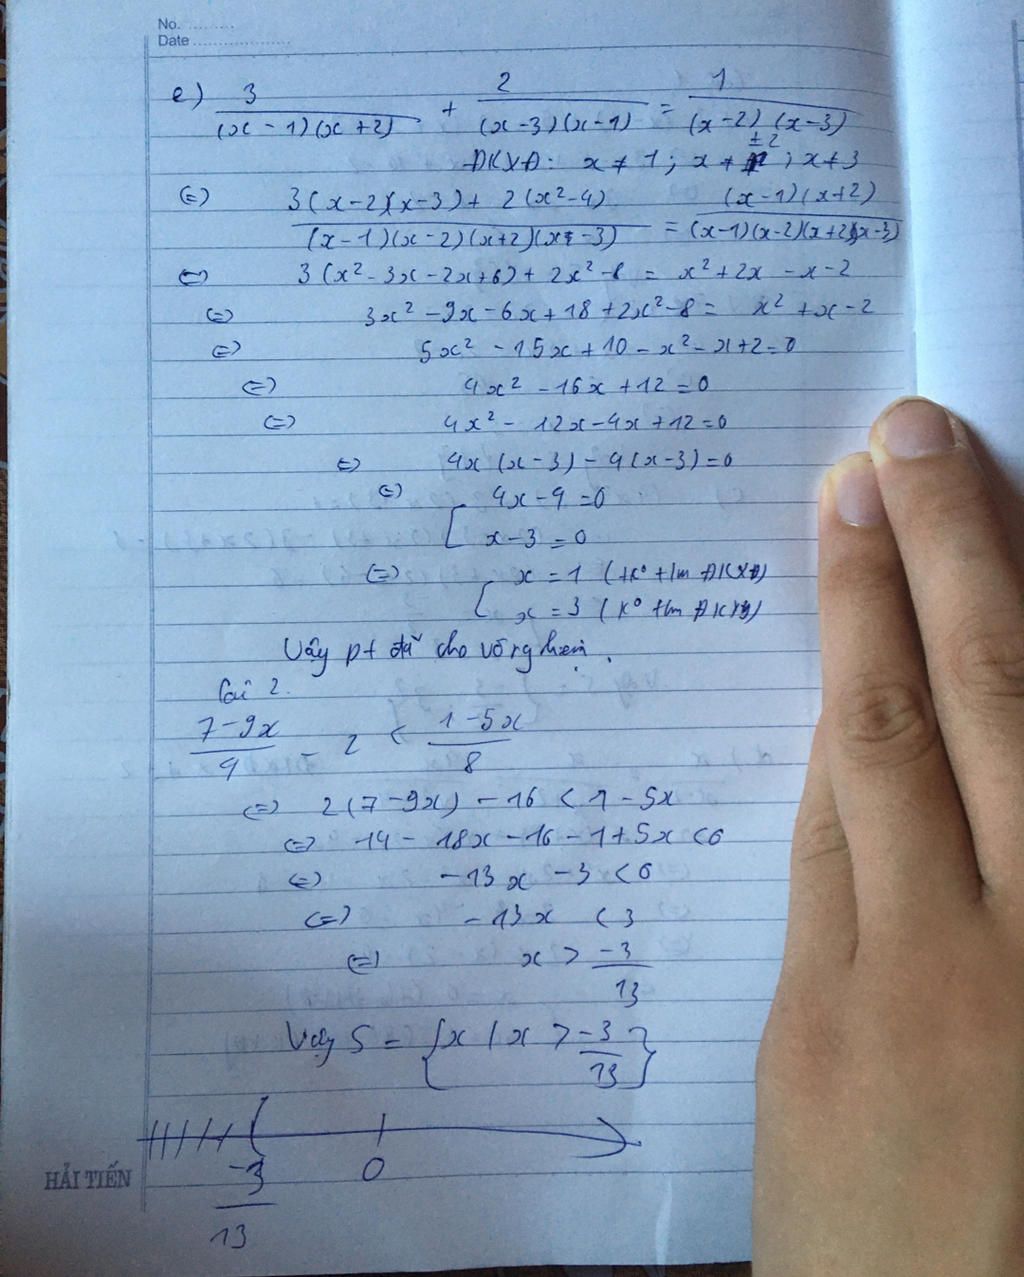 No. ..........
Date ....................
e) 3/((x-1)(x+2)) + 2/((x-3)(x-1)) = 1/((x-2)(x-3))
ĐKXĐ: x ≠ 1; x ≠ ±2; x ≠ 3
(=) (3(x-2)(x-3) + 2(x²-4))/((x-1)(x-2)(x+2)(x-3)) = ((x-1)(x+2))/((x-1)(x-2)(x+2)(x-3))
(=) 3(x²-3x-2x+6) + 2x²-8 = x²+2x-x-2
(=) 3x²-9x-6x+18+2x²-8 = x²+x-2
(=) 5x²-15x+10-x²-x+2=0
(=) 4x²-16x+12=0
(=) 4x²-12x-4x+12=0
(=) 4x(x-3)-4(x-3)=0
(=) [ 4x-4=0
x-3=0
(=) [ x=1 (k° tm ĐKXĐ)
x=3 (k° tm ĐKXĐ)
Vậy pt đã cho vô nghiệm.
Câu 2.
(7-9x)/4 - 2 < (1-5x)/8
(=) 2(7-9x)-16 < 1-5x
(=) 14-18x-16-1+5x<0
(=) -13x-3<0
(=) -13x<3
(=) x > -3/13
Vậy S = {x / x > -3/13}
-3/13 0
HẢI TIẾN